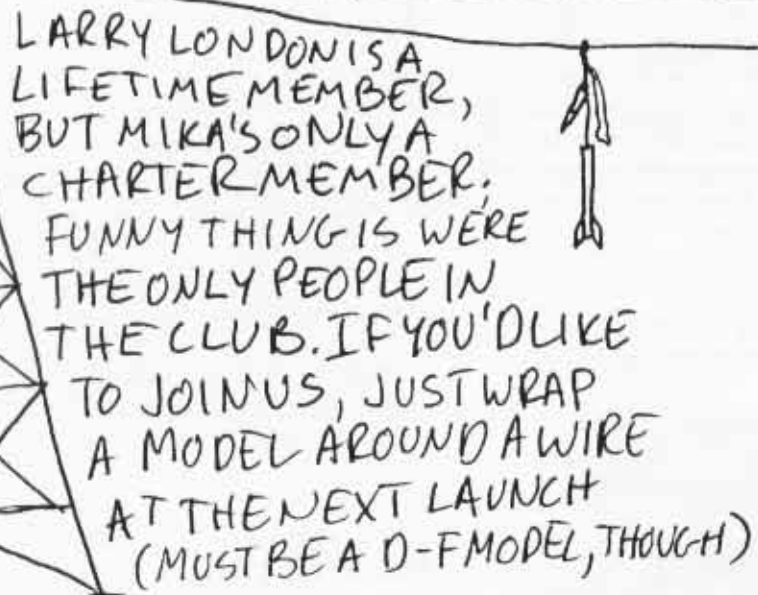 LARRY LONDON IS A
LIFETIME MEMBER,
BUT MIKA'S ONLY A
CHARTER MEMBER.
FUNNY THING IS WE'RE
THE ONLY PEOPLE IN
THE CLUB. IF YOU'D LIKE
TO JOIN US, JUST WRAP
A MODEL AROUND A WIRE
AT THE NEXT LAUNCH
(MUST BE A D-F MODEL, THOUGH)